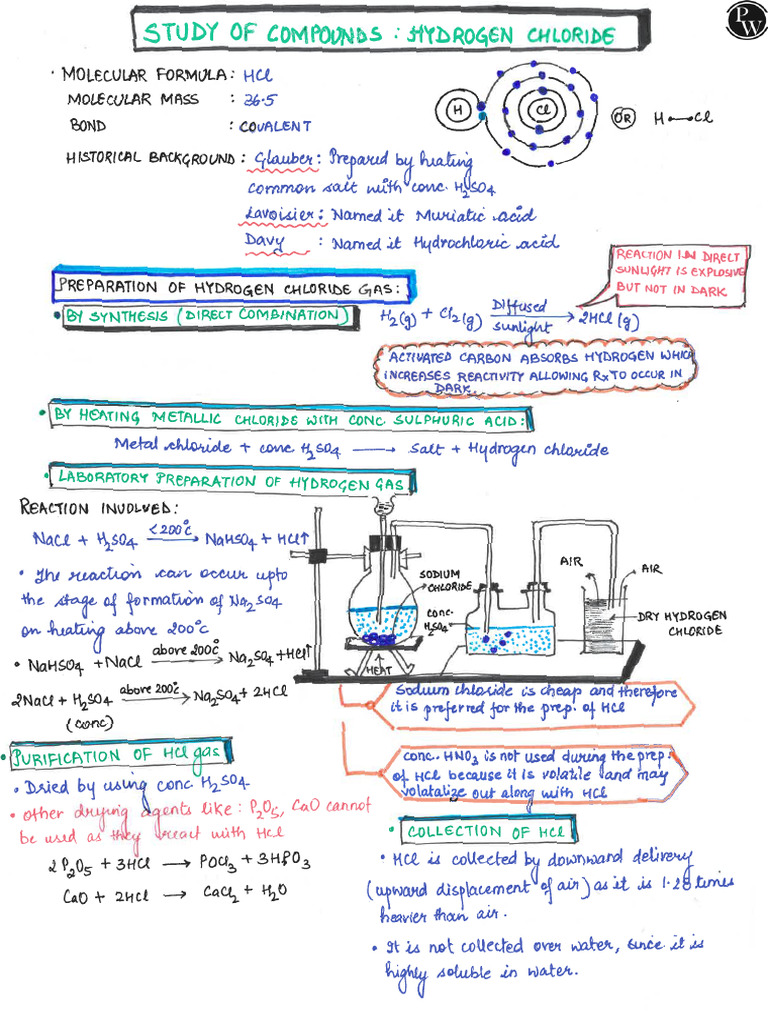 PW
STUDY OF COMPOUNDS : HYDROGEN CHLORIDE
• MOLECULAR FORMULA : HCl
MOLECULAR MASS : 36.5
BOND : COVALENT
H Cl OR H—Cl
HISTORICAL BACKGROUND : Glauber : Prepared by heating
common salt with conc. H₂SO₄
Lavoisier : Named it Muriatic acid
Davy : Named it Hydrochloric acid
REACTION IN DIRECT
SUNLIGHT IS EXPLOSIVE
BUT NOT IN DARK
PREPARATION OF HYDROGEN CHLORIDE GAS :
• BY SYNTHESIS (DIRECT COMBINATION)
H₂(g) + Cl₂(g) Diffused sunlight → 2HCl(g)
ACTIVATED CARBON ABSORBS HYDROGEN WHICH
INCREASES REACTIVITY ALLOWING Rx TO OCCUR IN
DARK.
• BY HEATING METALLIC CHLORIDE WITH CONC. SULPHURIC ACID :
Metal chloride + conc. H₂SO₄ → Salt + Hydrogen chloride
• LABORATORY PREPARATION OF HYDROGEN GAS
REACTION INVOLVED :
NaCl + H₂SO₄ <200°C → NaHSO₄ + HCl↑
• The reaction can occur upto
the stage of formation of Na₂SO₄
on heating above 200°C
• NaHSO₄ + NaCl above 200°C → Na₂SO₄ + HCl↑
2NaCl + H₂SO₄ above 200°C → Na₂SO₄ + 2HCl
(conc)
SODIUM
CHLORIDE
CONC.
H₂SO₄
HEAT
AIR
AIR
DRY HYDROGEN
CHLORIDE
Sodium chloride is cheap and therefore
it is preferred for the prep. of HCl
conc. HNO₃ is not used during the prep.
of HCl because it is volatile and may
volatalize out along with HCl
• PURIFICATION OF HCl gas
• Dried by using conc. H₂SO₄
• Other drying agents like : P₂O₅, CaO cannot
be used as they react with HCl
2P₂O₅ + 3HCl → POCl₃ + 3HPO₃
CaO + 2HCl → CaCl₂ + H₂O
• COLLECTION OF HCl
• HCl is collected by downward delivery
(upward displacement of air) as it is 1.28 times
heavier than air.
• It is not collected over water, since it is
highly soluble in water.